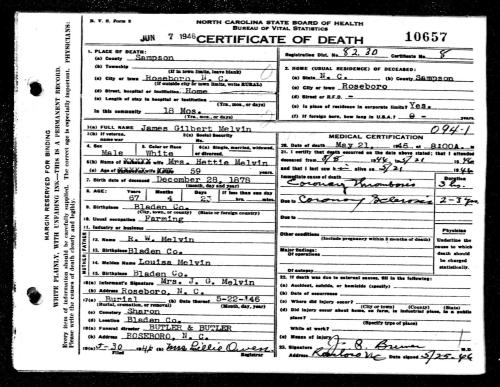 N. C. V. S. Form 8
NORTH CAROLINA STATE BOARD OF HEALTH
BUREAU OF VITAL STATISTICS
JUN 7 1946
CERTIFICATE OF DEATH
10657
Registration Dist. No. 82.30 Certificate No. 8
1. PLACE OF DEATH:
(a) County Sampson
(b) Township
(If in town limits, leave blank)
(c) City or town Roseboro, N. C.
(If outside city or town limits, write RURAL)
(d) Street, hospital or institution Home
(e) Length of stay in hospital or institution
(Yrs., mos., or days)
In this community 18 Mos.
(Yrs., mos., or days)
2. HOME (USUAL RESIDENCE) OF DECEASED:
(a) State N. C. (b) County Sampson
(c) City or town Roseboro
(d) Street or R.F.D. -
(e) Is place of residence in corporate limits? Yes.
(f) If foreign born, how long in U.S.A.?
0941
3. (a) FULL NAME James Gilbert Melvin
3 (b) If veteran, name war
3 (c) Social Security No.
4. Sex Male
5. Color or Race White
6 (a) Single, married, widowed, divorced
6 (b) Name of husband or wife Mrs. Hettie Melvin
6 (c) Age of husband or wife 59 years
7. Birth date of deceased December 28, 1878
(month, day and year)
8. AGE: Years 67 Months 4 Days 23 If less than one day hrs. min.
9. Birthplace Bladen Co.
(City, town, or county) (State or foreign country)
10. Usual occupation Farming
11. Industry or business
FATHER
12. Name R. W. Melvin
13. Birthplace Bladen Co.
MOTHER
14. Maiden Name Louisa Melvin
15. Birthplace Bladen Co.
16 (a) Informant's Signature Mrs. J. G. Melvin
(b) Address Roseboro, N. C.
17 (a) Burial (b) Date thereof 5-22-'46
(Burial, cremation, or removal) (Month, day, year)
(c) Cemetery Sharon
(d) Location Bladen Co.
18 (a) Funeral director BUTLER & BUTLER
(b) Address ROSEBORO, N. C.
19 (a) 5-30 1946 (b) Mrs Lillie Owen
Filed Registrar
MEDICAL CERTIFICATION
20. Date of Death May 21, 46, at 8:00A. M.
Immediate cause of death
Duration
Coronary Thrombosis 3 hrs.
Due to Coronary Sclerosis
Other conditions
(Include pregnancy within 3 months of death)
Major findings:
Of operations
Of autopsy
Physician
Underline the cause to which death should be charged statistically
22. If death was due to external causes, fill in the following:
(a) Accident, suicide, or homicide (specify)
(b) Date of occurrence
(c) Where did injury occur?
(City or town) (County) (State)
(d) Did injury occur about home, on farm, in industrial place, in public place?
(Specify type of place)
While at work?
(e) Means of injury
23. Signature
M.D.
Address Date signed 5/25-46
MARGIN RESERVED FOR BINDING
WRITE PLAINLY, WITH UNFADING INK—THIS IS A PERMANENT RECORD.